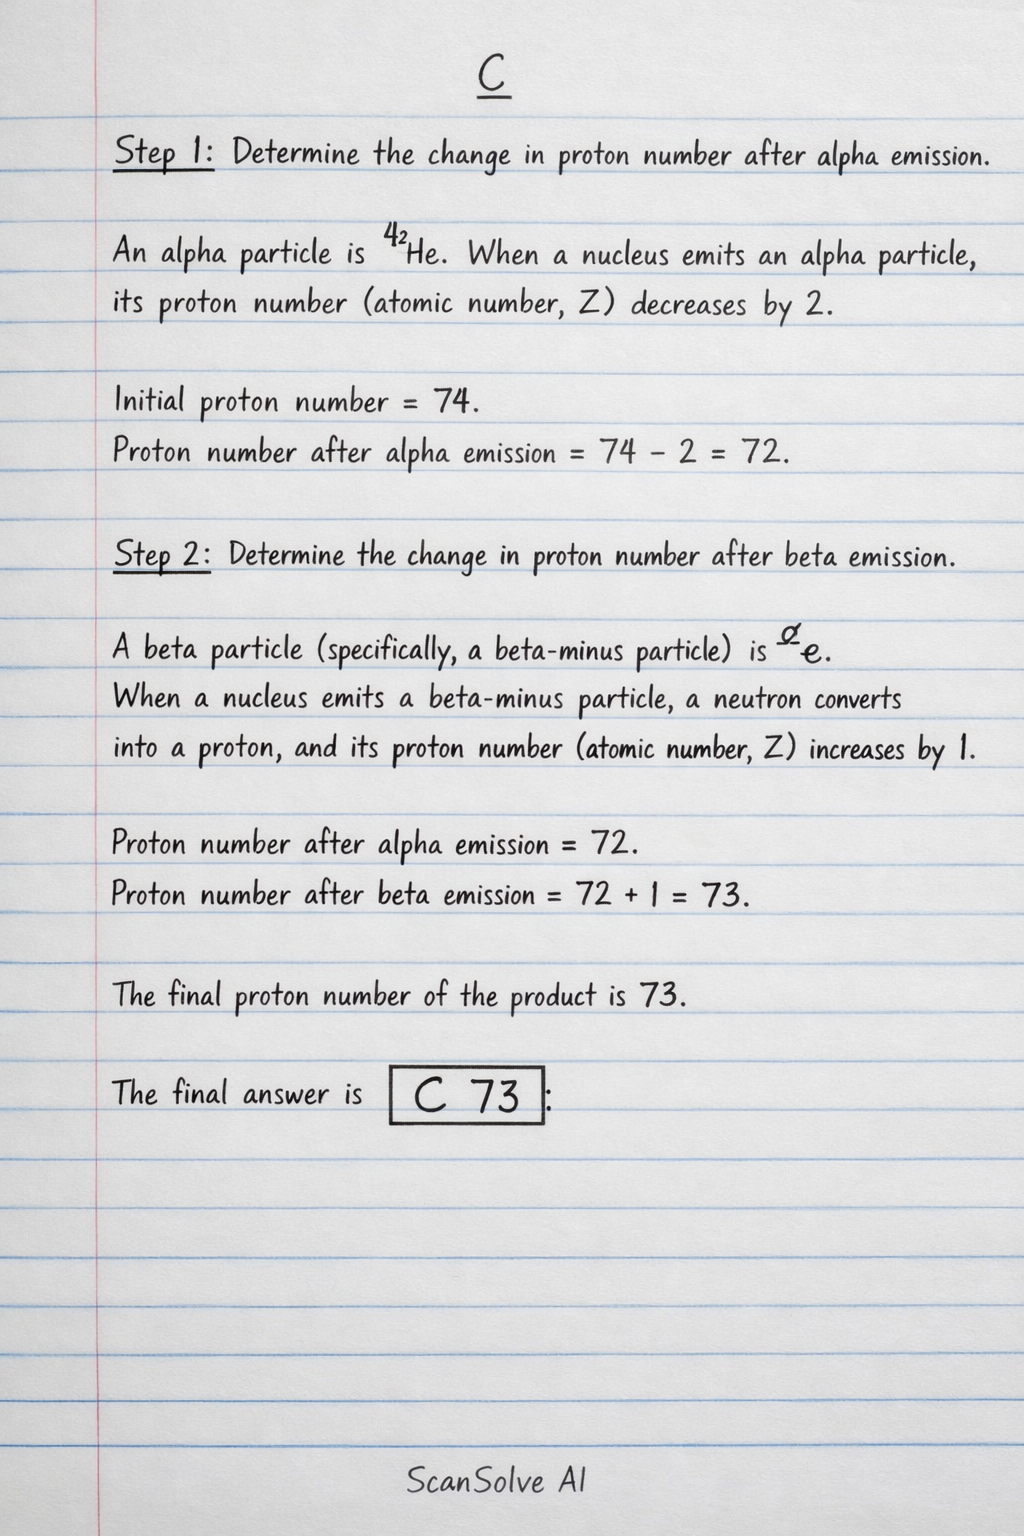 C
Step 1: Determine the change in proton number after alpha emission.
An alpha particle is ⁴²He. When a nucleus emits an alpha particle,
its proton number (atomic number, Z) decreases by 2.
Initial proton number = 74.
Proton number after alpha emission = 74 - 2 = 72.
Step 2: Determine the change in proton number after beta emission.
A beta particle (specifically, a beta-minus particle) is e.
When a nucleus emits a beta-minus particle, a neutron converts
into a proton, and its proton number (atomic number, Z) increases by 1.
Proton number after alpha emission = 72.
Proton number after beta emission = 72 + 1 = 73.
The final proton number of the product is 73.
The final answer is C 73:
ScanSolve AI